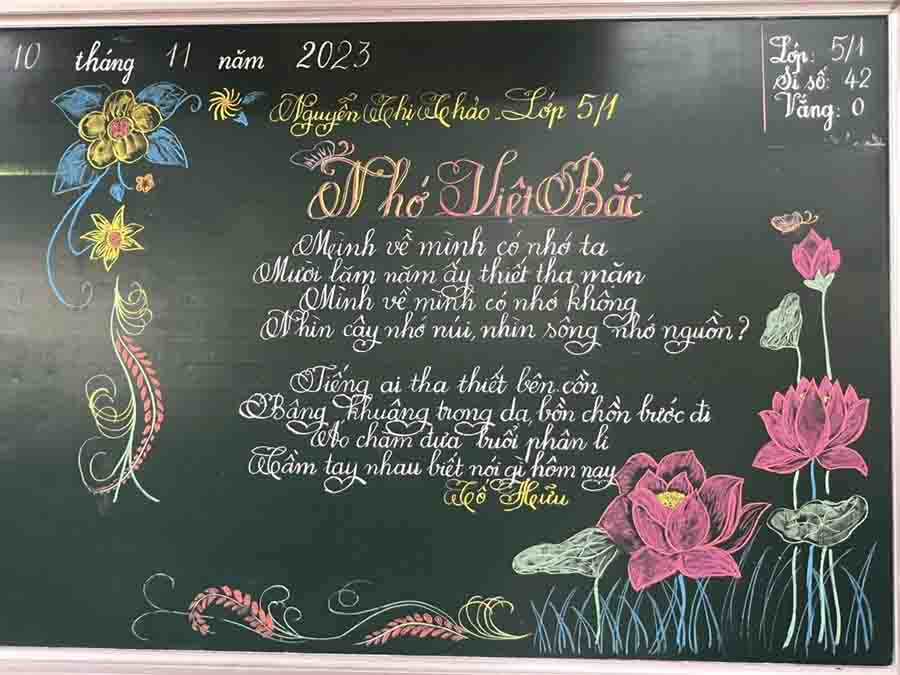 10 tháng 11 năm 2023
Lớp: 5/1
Sĩ số: 42
Vắng: 0
Nguyễn Thị Thảo - Lớp 5/1
Nhớ Việt Bắc
Mình về mình có nhớ ta
Mười lăm năm ấy thiết tha mặn
Mình về mình có nhớ không
Nhìn cây nhớ núi, nhìn sông nhớ nguồn?
Tiếng ai tha thiết bên cồn
Bâng khuâng trong dạ, bồn chồn bước đi
Áo chàm đưa buổi phân li
Cầm tay nhau biết nói gì hôm nay
Tố Hữu